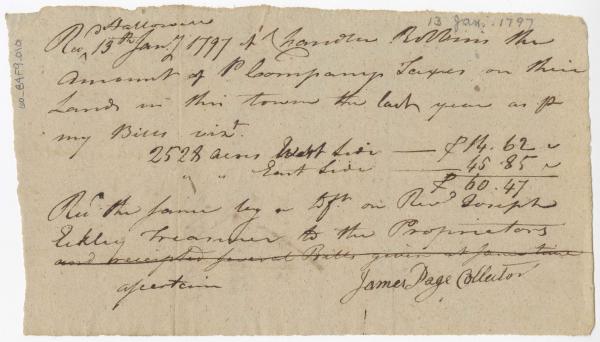 13 Jan. 1797
Hallowell
Rec.d 13th Jan.y 1797 of Chandler Robbins the
amount of P Company Taxes on their
Lands in this town the last year as p
my Bills viz.t
2528 acres West Side — $14.62
" " East Side — 45.85
$ 60.47
Rec.d the same by a Dft. on Rev.d Joseph
Eckley Treasurer to the Proprietors
and receipted several Bills given at same time
James Page Collector